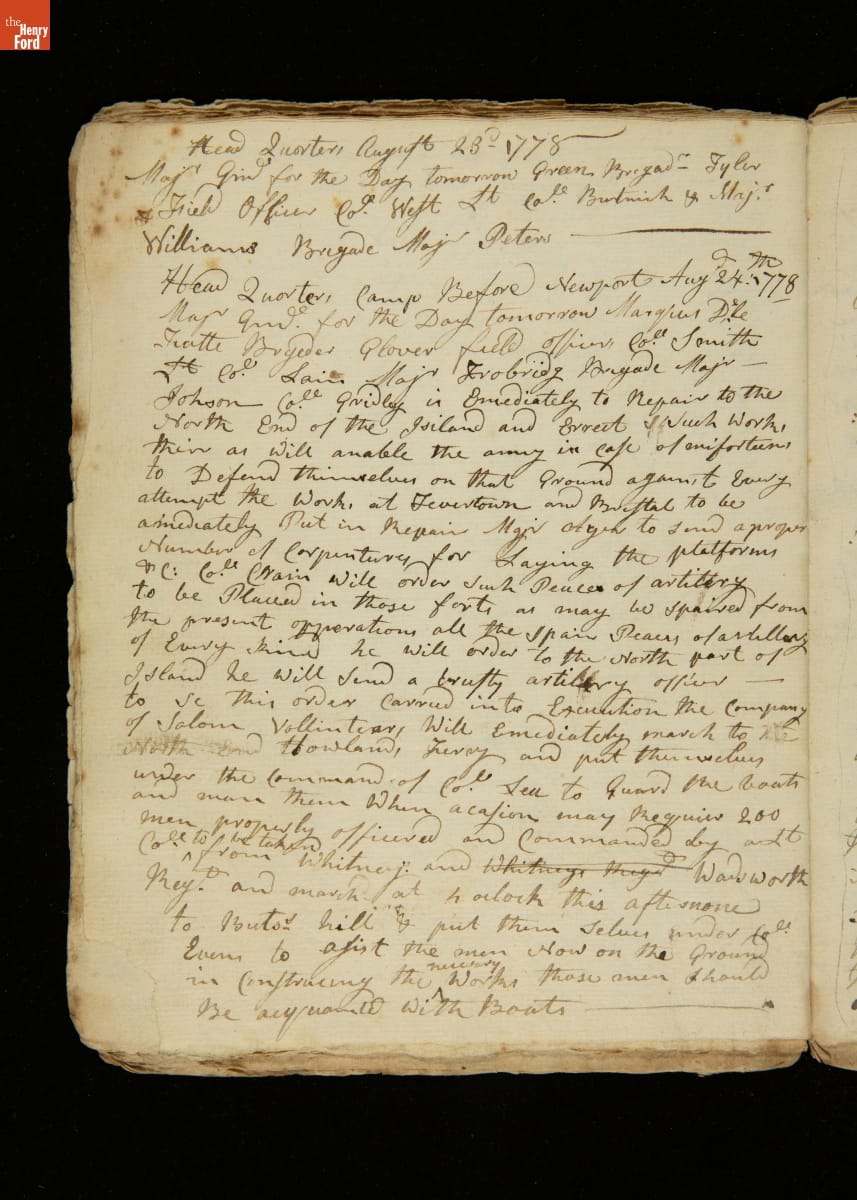 the
Henry
Ford
Head Quorters August 23d 1778
Majr Ginl for the Day tomorrow Green Brigadr Tyler
& Field Officer Col West Lt Cole Butnick & Majr
Williams Brigade Majr Peters
Head Quorters Camp Before Newport Augt 24th 1778
Majr Ginl for the Day tomorrow Marqius De le
Fratte Brgeder Glover field officer Coll Smith
Lt Col Lain Majr Trobridg Brigade Majr
Johson Cole Gridley is Emediately to Repair to the
North End of the Isiland and Errect Such Works
their as will anable the army in case of misfortune
to Defend thimselves on that Ground against Every
attempt the Works at Tevertown and Bristal to be
amediately Put in Repair Majr to send a proper
Number of Corpentures for Laying the platforms
&C: Cole Crain will order such Peaces of artillery
to be Placed in those forts as may be spaired from
the present opperations all the Spair Peaces of artillery
of Every kind he will order to the North part of
Island he will send a trusty artillery officer
to se this order carried into Execution the Company
of Salom Vollintears Will Emediately march to the
North End Howlands Ferry and put themselves
under the Command of Cole Leu to Guard the boats
and man them When acasion may Requier 200
men properly officered an Commanded by a Lt
Cole to be taken from Whitney and Whitneys Regt Wadsworth
Regt and march at 4 oclock this afternone
to Butss hill & put them selves under Cole
Evens to asist the men Now on the Ground
in Constructing the necesary Works those men Should
Be acquainted With Boats